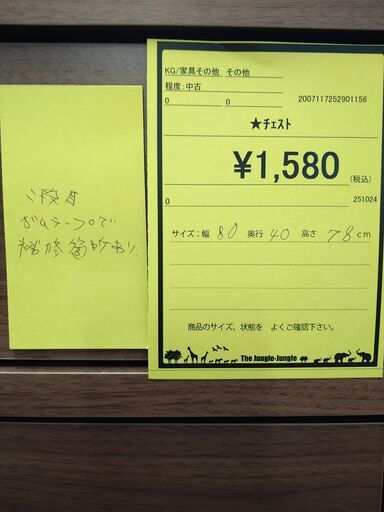 二段目
ガムテープで
補修箇所あり
KG/家具その他 その他
程度:中古
0 0 2007117252901156
★チェスト
¥1,580(税込)
0 251024
サイズ:幅 80 奥行 40 高さ 78 cm
商品のサイズ、状態を よくご確認下さい。
The Jungle-Jungle